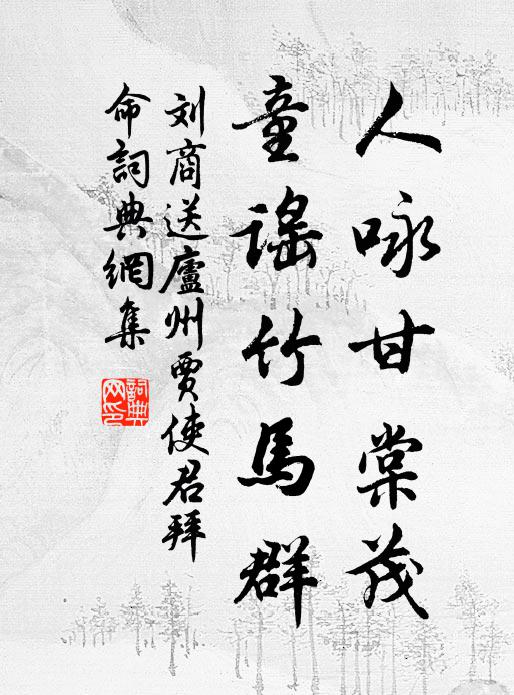 人咏甘棠茂
童謠竹馬群
刘商送廬州賈使君拜
命詞典網集
詞典网印